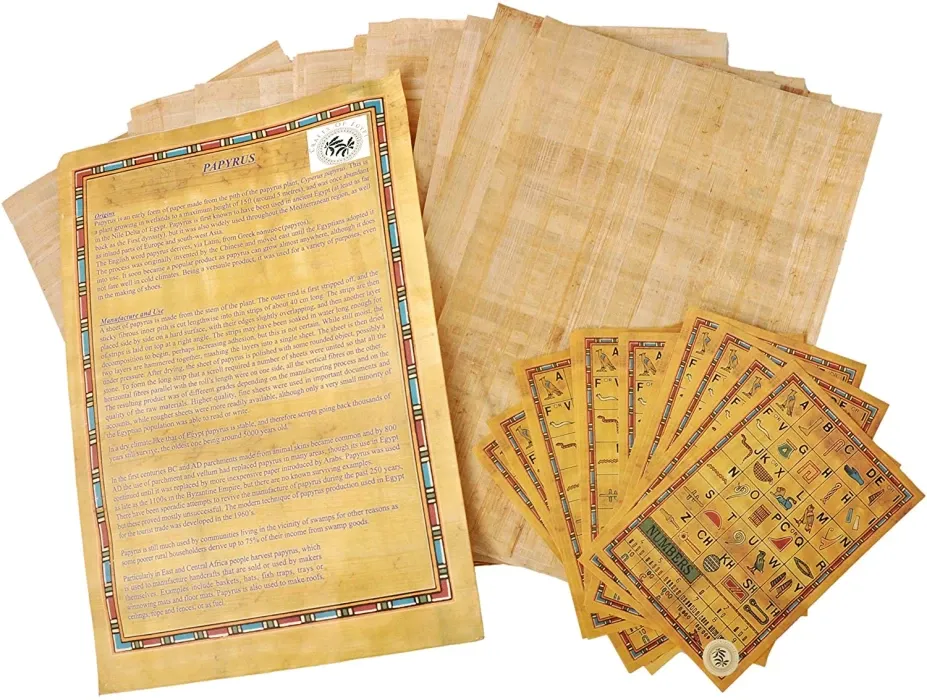 PAPYRUS
Origins
Papyrus is an early form of paper made from the pith of the papyrus plant, Cyperus papyrus. This is
a plant growing in wetlands to a maximum height of 15ft (around 5 metres), and was once abundant
in the Nile Delta of Egypt. Papyrus is first known to have been used in ancient Egypt (at least as far
back as the First dynasty), but it was also widely used throughout the Mediterranean region, as well
as inland parts of Europe and south-west Asia.
The English word papyrus derives, via Latin, from Greek (papyros).
The process was originally invented by the Chinese and moved east until the Egyptians adopted it
into use. It soon became a popular product as papyrus can grow almost anywhere, although it does
not fare well in cold climates. Being a versatile product, it was used for a variety of purposes, even
in the making of shoes.
Manufacture and Use
A sheet of papyrus is made from the stem of the plant. The outer rind is first stripped off, and the
sticky fibrous inner pith is cut lengthwise into thin strips of about 40 cm long. The strips are then
placed side by side on a hard surface, with their edges slightly overlapping, and then another layer
of strips is laid on top at a right angle. The strips may have been soaked in water long enough for
decomposition to begin, perhaps increasing adhesion, but this is not certain. While still moist, the
two layers are hammered together, mashing the layers into a single sheet. The sheet is then dried
under pressure. After drying, the sheet of papyrus is polished with some rounded object, possibly a
stone. To form the long strip that a scroll required a number of sheets were united so that all the
horizontal fibres parallel with the roll's length were on one side, all the vertical fibres on the other.
The resulting product was of different grades depending on the manufacturing process and on the
quality of the raw materials. Higher-quality, fine sheets were used in important documents and
accounts, while rougher sheets were more readily available, although only a very small minority of
the Egyptian population was able to read or write.
In a dry climate like that of Egypt papyrus is stable, and therefore scripts going back thousands of
years still survive, the oldest one being around 5000 years old.
In the first centuries BC and AD parchments made from animal skins became common and by 800
AD the use of parchment and vellum had replaced papyrus in many areas, though its use in Egypt
continued until it was replaced by more inexpensive paper introduced by Arabs. Papyrus was used
as late as the 1100s in the Byzantine Empire, but there are no known surviving examples.
There have been sporadic attempts to revive the manufacture of papyrus during the past 250 years,
but these proved mostly unsuccessful. The modern technique of papyrus production used in Egypt
for the tourist trade was developed in the 1960's.
Papyrus is still much used by communities living in the vicinity of swamps for other reasons as
some poorer rural householders derive up to 75% of their income from swamp goods.
Particularly in East and Central Africa people harvest papyrus, which
is used to manufacture handcrafts that are sold or used by makers
themselves. Examples include baskets, hats, fish traps, trays or
winnowing mats and floor mats. Papyrus is also used to make roofs,
ceilings, rope and fences, or as fuel.
A B C D E
F OR V G H I
J K L M
N O P Q R
S T U W V
Z CH KH SH TH
NUMBERS